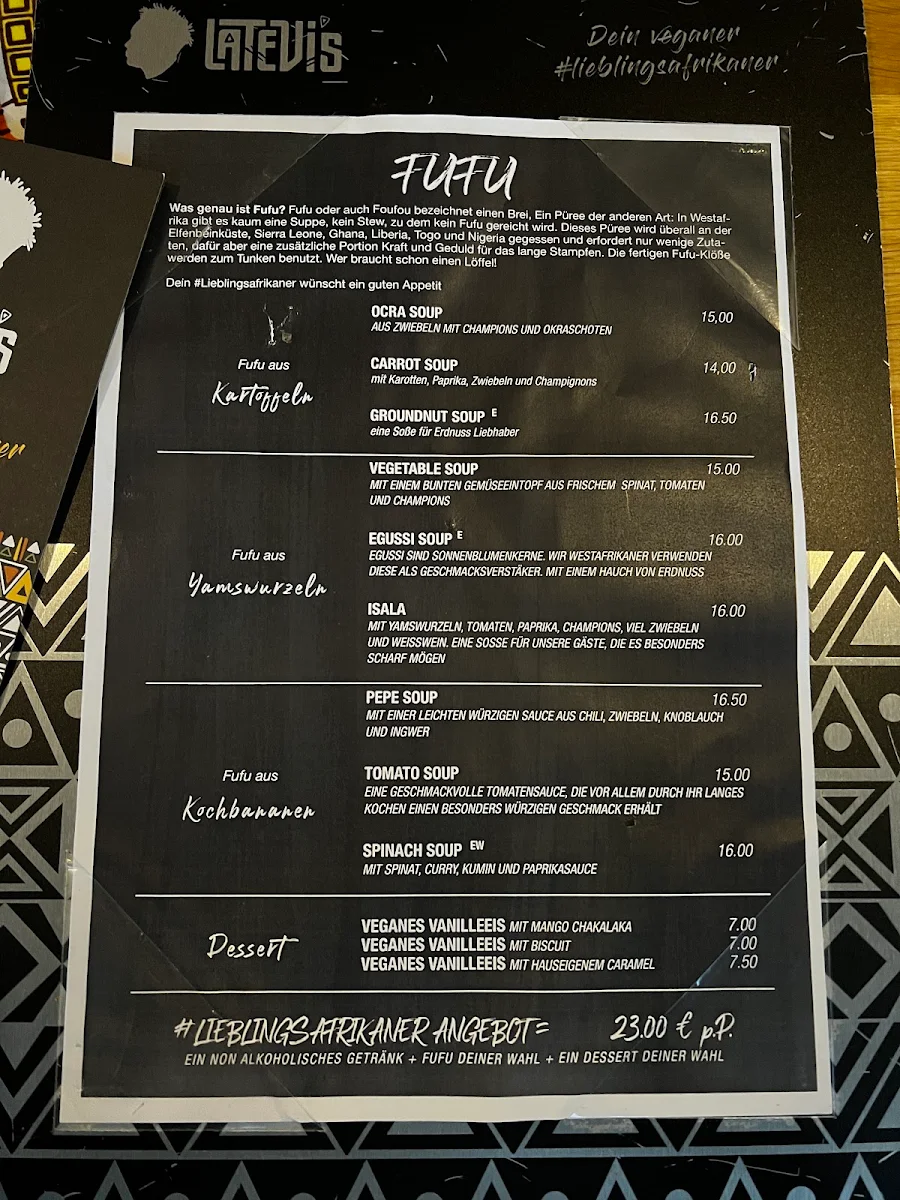 LATEVIS
Dein veganer
#lieblingsafrikaner
FUFU
Was genau ist Fufu? Fufu oder auch Foufou bezeichnet einen Brei, Ein Püree der anderen Art: In Westaf-
rika gibt es kaum eine Suppe, kein Stew, zu dem kein Fufu gereicht wird. Dieses Püree wird überall an der
Elfenbeinküste, Sierra Leone, Ghana, Liberia, Togo und Nigeria gegessen und erfordert nur wenige Zuta-
ten, dafür aber eine zusätzliche Portion Kraft und Geduld für das lange Stampfen. Die fertigen Fufu-Klöße
werden zum Tunken benutzt. Wer braucht schon einen Löffel!
Dein #Lieblingsafrikaner wünscht ein guten Appetit
Fufu aus
Kartoffeln
OCRA SOUP 15,00
AUS ZWIEBELN MIT CHAMPIONS UND OKRASCHOTEN
CARROT SOUP 14,00
mit Karotten, Paprika, Zwiebeln und Champignons
GROUNDNUT SOUP E 16.50
eine Soße für Erdnuss Liebhaber
Fufu aus
Yamswurzeln
VEGETABLE SOUP 15.00
MIT EINEM BUNTEN GEMÜSEEINTOPF AUS FRISCHEM SPINAT, TOMATEN
UND CHAMPIONS
EGUSSI SOUP E 16.00
EGUSSI SIND SONNENBLUMENKERNE. WIR WESTAFRIKANER VERWENDEN
DIESE ALS GESCHMACKSVERSTÄKER. MIT EINEM HAUCH VON ERDNUSS
ISALA 16.00
MIT YAMSWURZELN, TOMATEN, PAPRIKA, CHAMPIONS, VIEL ZWIEBELN
UND WEISSWEIN. EINE SOSSE FÜR UNSERE GÄSTE, DIE ES BESONDERS
SCHARF MÖGEN
Fufu aus
Kochbananen
PEPE SOUP 16.50
MIT EINER LEICHTEN WÜRZIGEN SAUCE AUS CHILI, ZWIEBELN, KNOBLAUCH
UND INGWER
TOMATO SOUP 15.00
EINE GESCHMACKVOLLE TOMATENSAUCE, DIE VOR ALLEM DURCH IHR LANGES
KOCHEN EINEN BESONDERS WÜRZIGEN GESCHMACK ERHÄLT
SPINACH SOUP EW 16.00
MIT SPINAT, CURRY, KUMIN UND PAPRIKASAUCE
Dessert
VEGANES VANILLEEIS MIT MANGO CHAKALAKA 7.00
VEGANES VANILLEEIS MIT BISCUIT 7.00
VEGANES VANILLEEIS MIT HAUSEIGENEM CARAMEL 7.50
#LIEBLINGSAFRIKANER ANGEBOT= 23.00 € p.P.
EIN NON ALKOHOLISCHES GETRÄNK + FUFU DEINER WAHL + EIN DESSERT DEINER WAHL